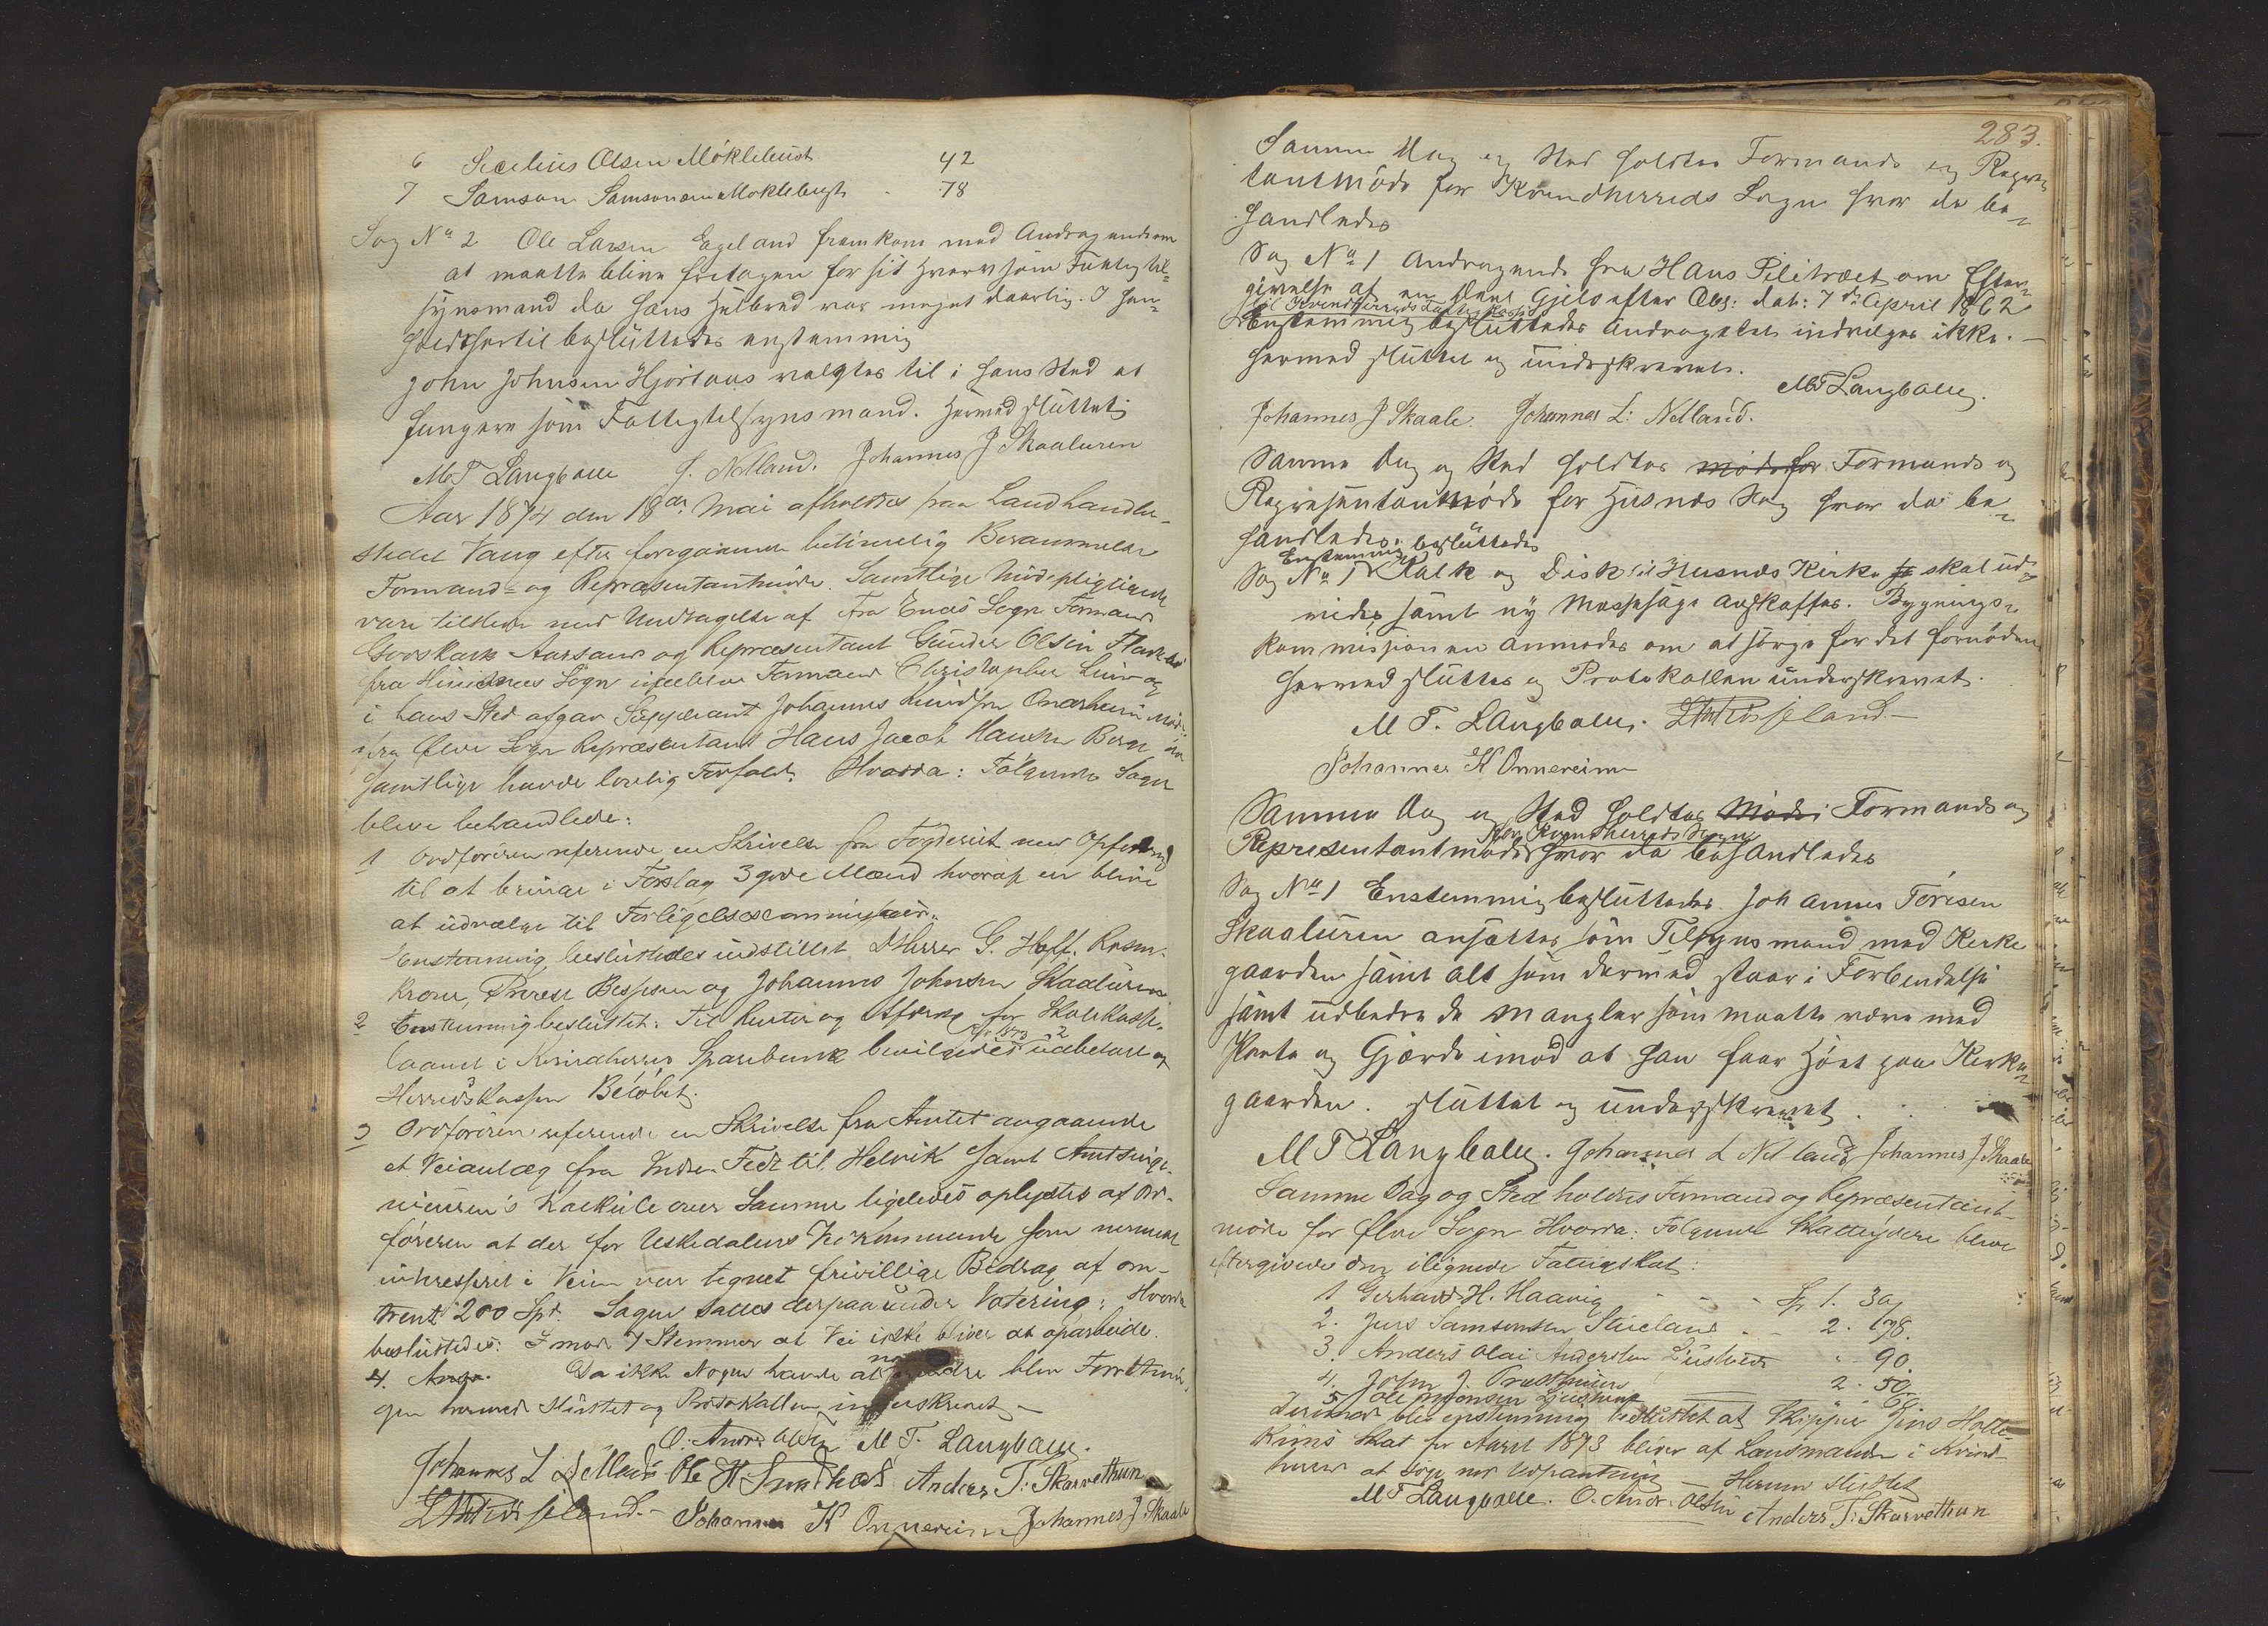 6 Secelius Olsen Möklebust 42
7 Samson Samsonsen Moklebugt - 78
Sag No 2 Ole Larsen Egeland fremkom med Andragende om
at maatte blive fritagen for sit Hverv som Fattigtil=
synsmand da hans Helbred var meget daarlig. I Hen=
hold hertil besluttedes enstemmig
John Johnsen Hjortaas valgtes til i hans Sted at
fungere som Fattigtilsynsmand. Hermed sluttet
M T Langballe J. Netland. Johannes J Skaaluren
Aar 1874 den 18de Mai afholdtes paa Landhandler-
stedet Vang efter foregaaende betimelig Berammelse
Formand= og Repræsentantmöde. Samtlige Mödepligtige
vare tilstede med Undtagelse af Fra Enæs Sogn Formand
Govskark Aarsand og Repræsentant Gunder Olsen
fra Husnæs Sogn Formand Christopher Lund og
i hans Sted afgav Suppleant Johannes Knudsen Onarheim Möde
fra Ølve Sogn Repræsentant Hans Jacob Hansen Berge
samtlige havde lovlig Forfald. Hvorda: Fölgende Sager
bleve behandlede:
1 Ordföreren refererede en Skrivelse fra Fogderiet med Opfordring
til at bringe i Forslag 3 gode Mænd hvoraf en bliver
at udvælge til Forligelsescommissær.
Enstemmig besluttedes indstillet DHerrer G. Hoff, Rosen-
krone, Besssen og Johannes Johnsen Skaaluren
2 Enstemmig besluttet: Til Renter og Afdrag for Skolekasse-
for 1873
laanet i Kvindherreds Sparebank bevilgedes udbetalt af
Herredskassen Belöbet.
3 Ordföreren refererede en Skrivelse fra Amtet angaaende
et Veianlæg fra Indre Fedt til Helvik samt Amtsinge-
niörens Kalkule over Samme ligeledes oplystes af Ord-
föreren at der for Uskedalens Vedkommende som nærmest
intresseret i Veien var tegnet frivillige Bidrag af om-
trent 200 Spd. Sagen sattes derpaa under Votering: Hvorda
besluttedes: I mod 7 Stemmer at Vei ikke bliver at oparbeide.
4. Da ikke Nogen havde at blev Forretnin-
gen hermed sluttet og Protokollen underskrevet -
O. Andr. Olsen M T. Langballe.
Johannes L Netland Ole H Anders T: Skarvethun
Johannes K Onnereim Johannes J Skaale
283.
Samme Dag og Sted holdtes Formands og Repræsen
tantmöde for Kvindherreds Sogn hvor da be=
handledes
Sag No 1 Andragende fra Hans Piletræet om Efter=
givelse af en Deel Gjeld efter Obl: dat: 7de April 1862
til Kvindherreds Fattigkasse
Enstemmig besluttedes Andragelet indvilges ikke. -
Hermed sluttet og underskrevet.
M T Langballe.
Johannes J Skaale. Johannes L: Netland.
Samme Dag og Sted holdtes Möde for Formands og
Repræsentantmöde for Husnæs Sog hvor da be=
handledes.
Enstemmig besluttedes
Sag No 1 Kalk og Disk til Husnæs Kirke skal ud=
vides samt ny Messehage anskaffes. Bygnings=
kommissionen anmodes om at sörge for det fornödne
Hermed sluttes og Protokollen underskrevet.
M T. Langballe.
Johannes K Onnereim
Samme Dag og Sted holdtes Möde Formands og
for Kvindherreds Sogn
Representantmöde hvor da behandledes
Sag No 1 Enstemmig besluttedes Johannes Törisen
Skaaluren ansættes som Tilsynsmand med Kerke
gaarden samt alt som dermed staar i Forbindelse
samt udbedre de Mangler som maatte være med
Porte og Gjærde imod at han faar Höet paa Kerke=
gaarden. Sluttet og underskrevet.
M T Langballe. Johannes L Netland Johannes J Skaale
Samme Dag og Sted holdtes Formand og Repræsentant-
möde for Ølve Sogn Hvorda: Fölgende Skatteydere bleve
eftergivne den ilignede Fattigskat:
1 Gerhard H. Haavig - - - Sp 1. 30
2. Jens Samsonsen - - 2. 198.
3. Anders Olai Andersen " 90.
4. John J. 2. 50.
5, Ole
Derimod blev enstemmig besluttet at Skipper Jens Holte-
Skat for Aaret 1873 bliver af Lensmanden i Kvind-
herred at söge ved Udpantning - Hermed sluttet
M T Langballe. O. Andr. Olsen Anders T: Skarvethun